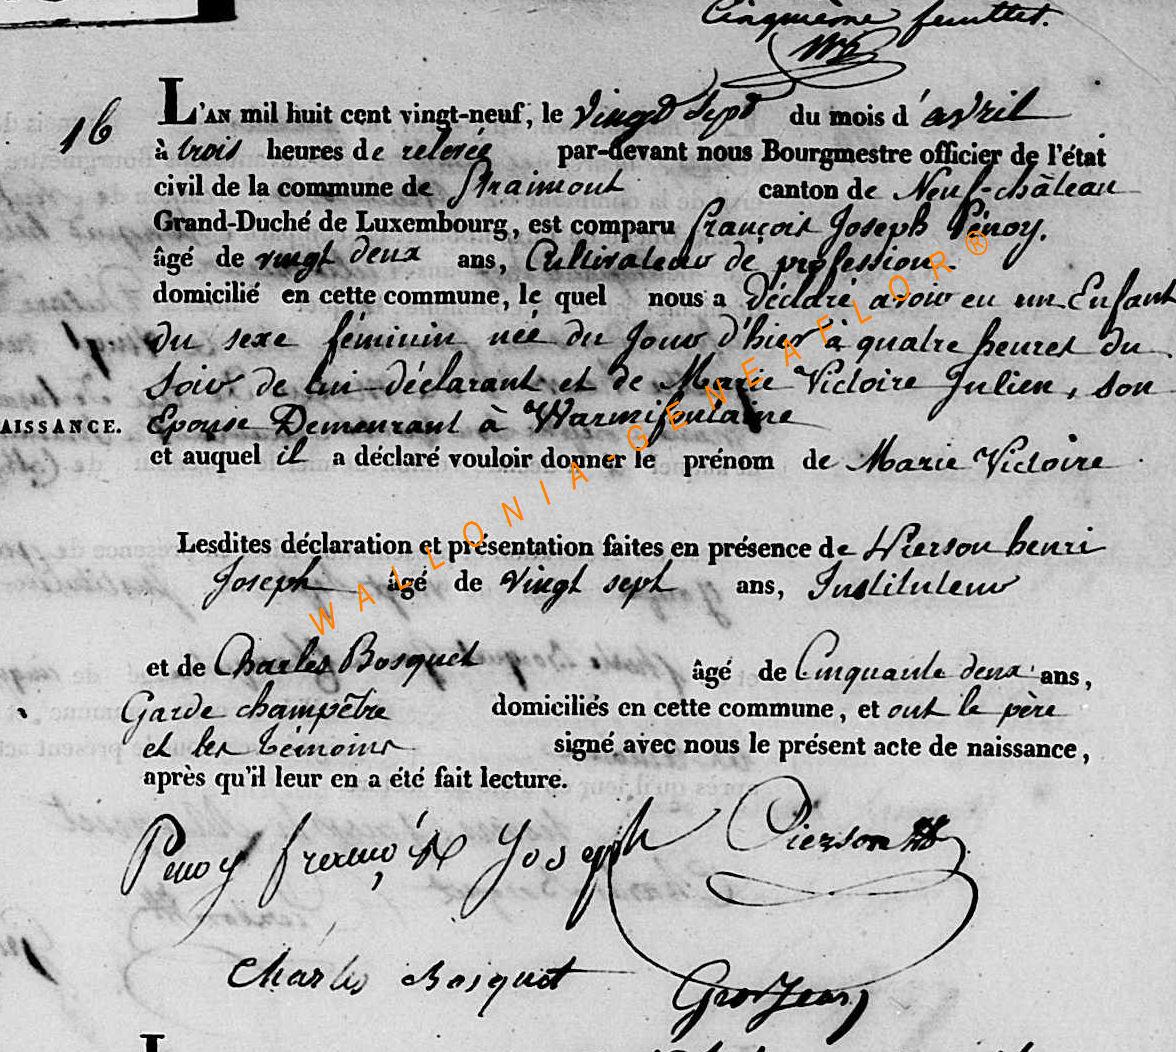 Cinquième feuillet.
16
L'AN mil huit cent vingt-neuf, le vingt sept du mois d'avril
à trois heures de relevée par-devant nous Bourgmestre officier de l'état
civil de la commune de Straimont canton de Neuf-château
Grand-Duché de Luxembourg, est comparu François Joseph Pénoy.
âgé de vingt deux ans, Cultivateur de profession.
domicilié en cette commune, le quel nous a déclaré avoir eu un Enfant
du sexe féminin née du Jour d'hier à quatre heures du
Soir de lui déclarant et de Marie Victoire Julien, son
AISSANCE. Epouse Demeurant à Warmifontaine
et auquel il a déclaré vouloir donner le prénom de Marie Victoire
Lesdites déclaration et présentation faites en présence de Pierson henri
Joseph âgé de vingt sept ans, Instituteur
et de Charles Bosquet âgé de Cinquante deux ans,
Garde champêtre domiciliés en cette commune, et ont le père
et les témoins signé avec nous le présent acte de naissance,
après qu'il leur en a été fait lecture.
Penoy françois Joseph Pierson
Charles Bosquet GrosJean
WALLONIA-GENEAFLOR®